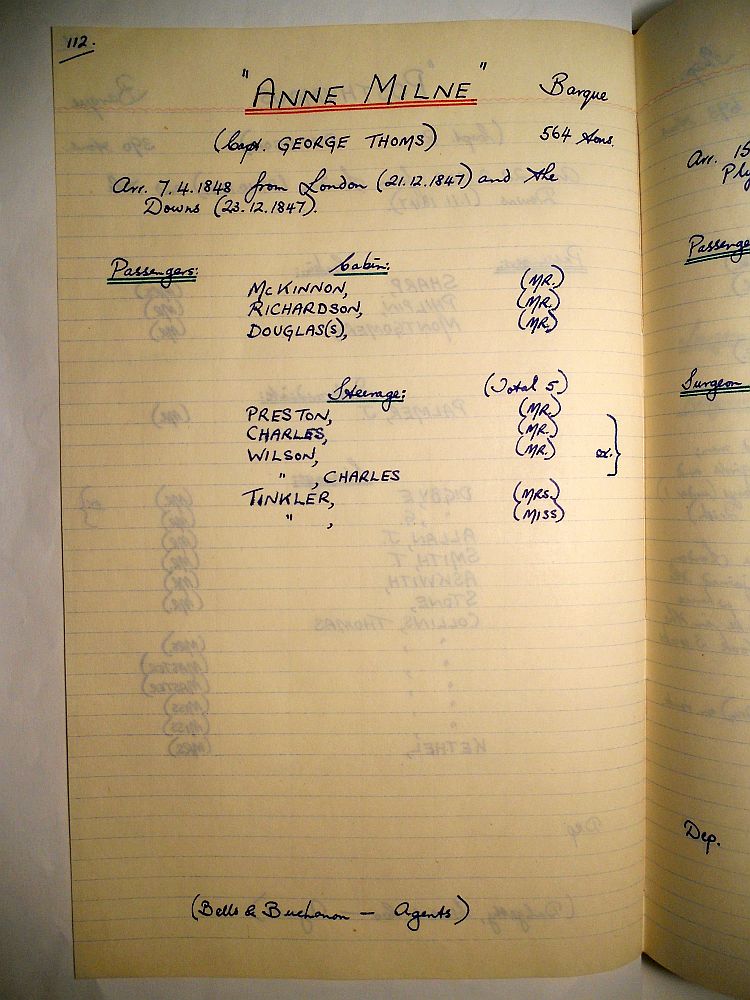 112.
"ANNE MILNE" Barque
(Capt. GEORGE THOMS) 564 tons.
Arr. 7.4.1848 from London (21.12.1847) and the
Downs (23.12.1847).
Passengers: Cabin:
McKINNON, (MR.)
RICHARDSON, (MR.)
DOUGLAS(S), (MR.)
Steerage: (Total 5)
PRESTON, (MR.)
CHARLES, (MR.)
WILSON, (MR.) or.
" , CHARLES
TINKLER, (MRS.)
" , (MISS)
(Bells & Buchanon — Agents)
Arr. 15
Ply
Passenge
Surgeon
Dep.